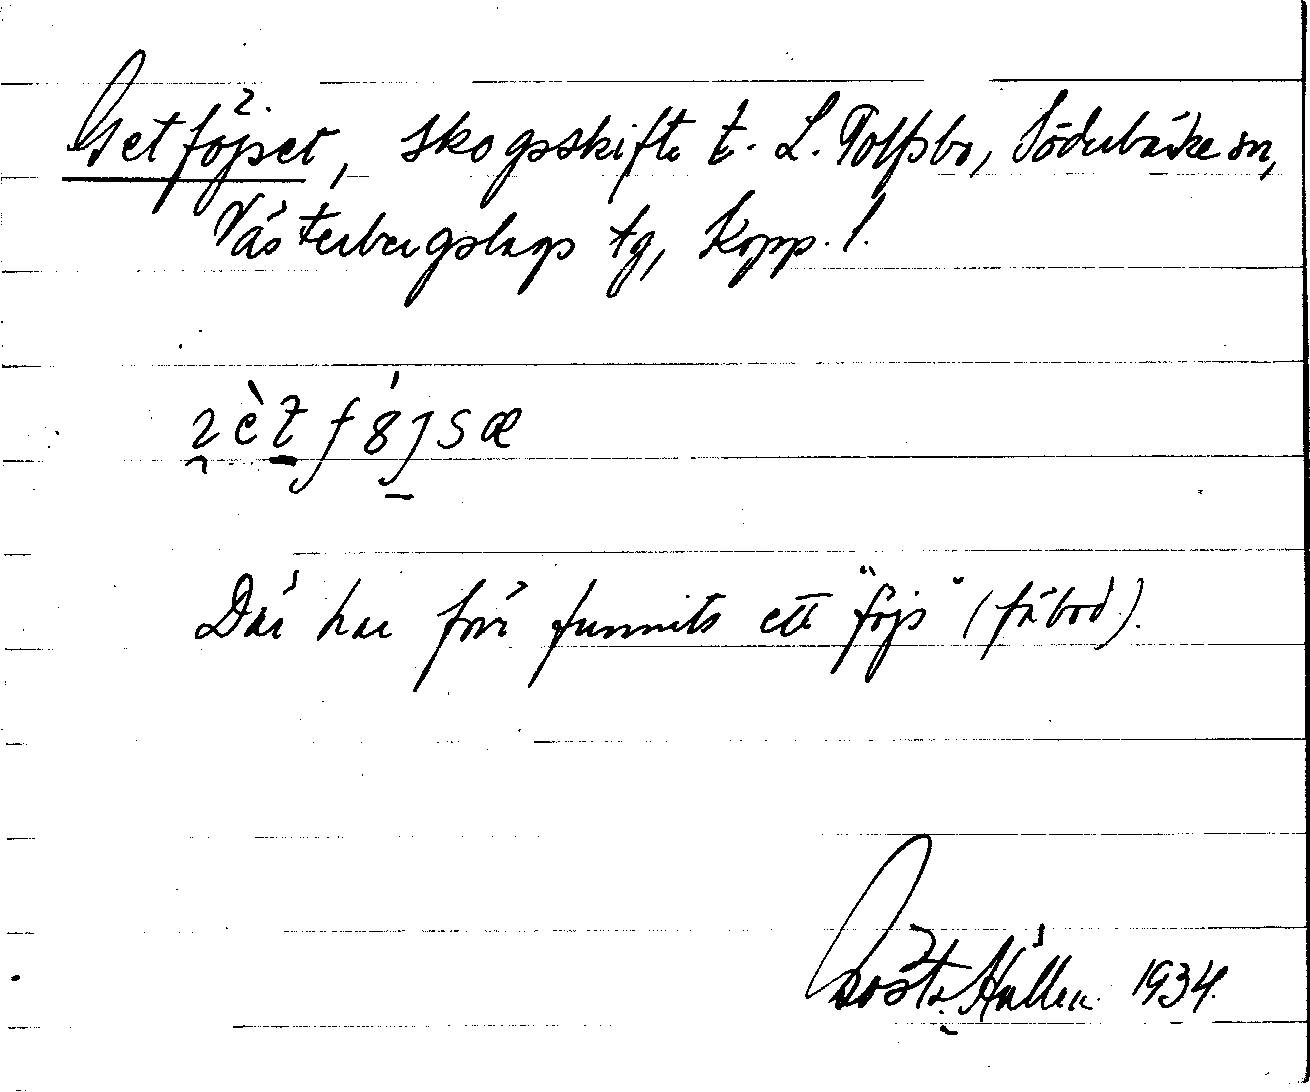 Getföjset, skogsskifte t. L. Tolfsbo, Söderbärke sn,
Västerbergslags tg, Kopp. l.
Där har förr funnits ett "föjs" (fäbod).
Gösta Hállen 1934.